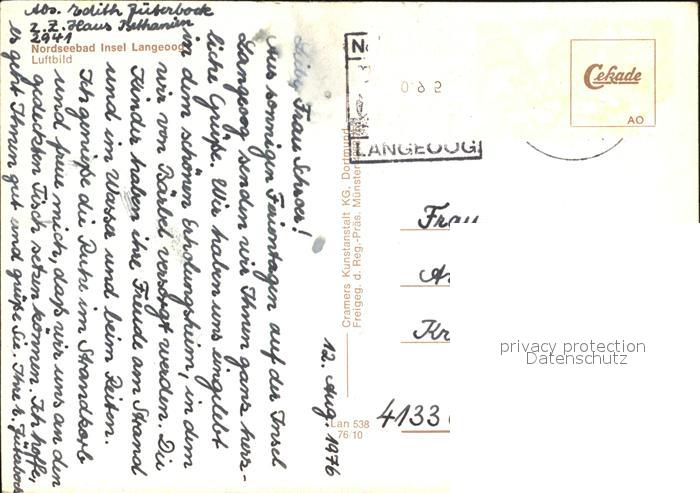 Abs. Edith Jüterbock
z. Z. Haus Bethanien
2941
Nordseebad Insel Langeoog
Luftbild
12. Aug. 1976
Liebe Frau Schroer!
Aus sonnigen Ferientagen auf der Insel
Langeoog senden wir Ihnen ganz herz-
liche Grüße. Wir haben uns eingelebt
in dem schönen Erholungsheim, in dem
wir von Bärbel versorgt werden. Die
Kinder haben ihre Freude am Strand
und im Wasser und beim Reiten.
Ich genieße die Ruhe im Strandkorb
und freue mich, daß wir uns an den
gedeckten Tisch setzen können. Ich hoffe,
es geht Ihnen gut und grüße Sie. Ihre E. Jüterbock
Cramers Kunstanstalt KG, Dortmund
Freigeg. d. Reg.-Präs. Münster
Lan 538
76/10
LANGEOOG
Cekade
AO
Frau
4133
privacy protection
Datenschutz